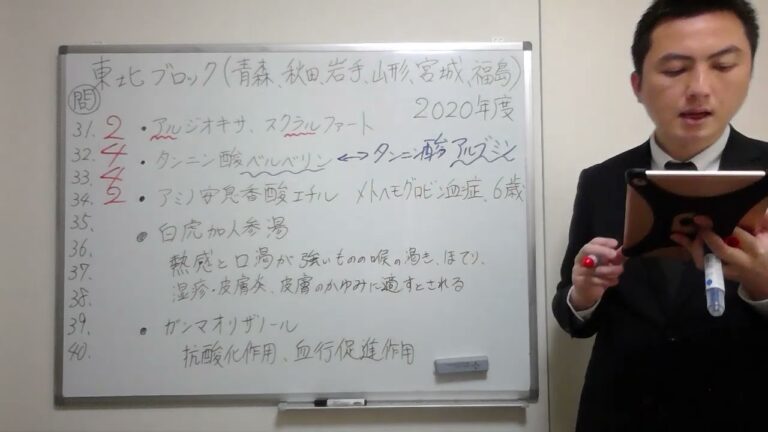 東北ブロック(青森、秋田、岩手、山形、宮城、福島)
2020年度
問
31. 2
32. 4
33. 4
34. 2
35.
36.
37.
38.
39.
40.
・アルジオキサ、スクラルファート
・タンニン酸ベルベリン ↔ タンニン酸アルブミン
・アミノ安息香酸エチル メトヘモグロビン血症、6歳
・白虎加人参湯
熱感と口渇が強いものの喉の渇き、ほてり、
湿疹・皮膚炎、皮膚のかゆみに適すとされる
・ガンマオリザノール
抗酸化作用、血行促進作用